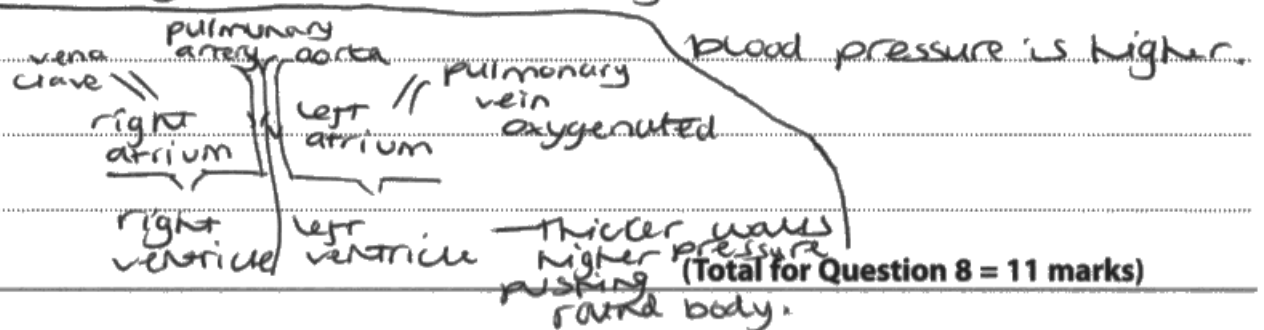 blood pressure is higher.
pulmunary
artery
aorta
vena
clave
pulmonary
vein
oxygenated
right
atrium
left
atrium
right
ventricle
left
ventricle
—thicker walls
higher pressure
pushing
round body.
(Total for Question 8 = 11 marks)